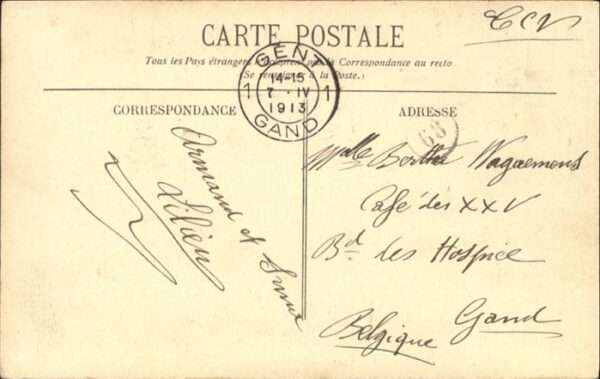 TCV
CARTE POSTALE
Tous les Pays étrangers n'acceptent pas la Correspondance au recto
(Se renseigner à la Poste.)
GENT
1 14-15 1
7 · IV
1913
GAND
CORRESPONDANCE
ADRESSE
68
Armand et
Lilien
Mlle Berthe Wagaemens
Café des XXV
Bd des Hospice
Gand
Belgique